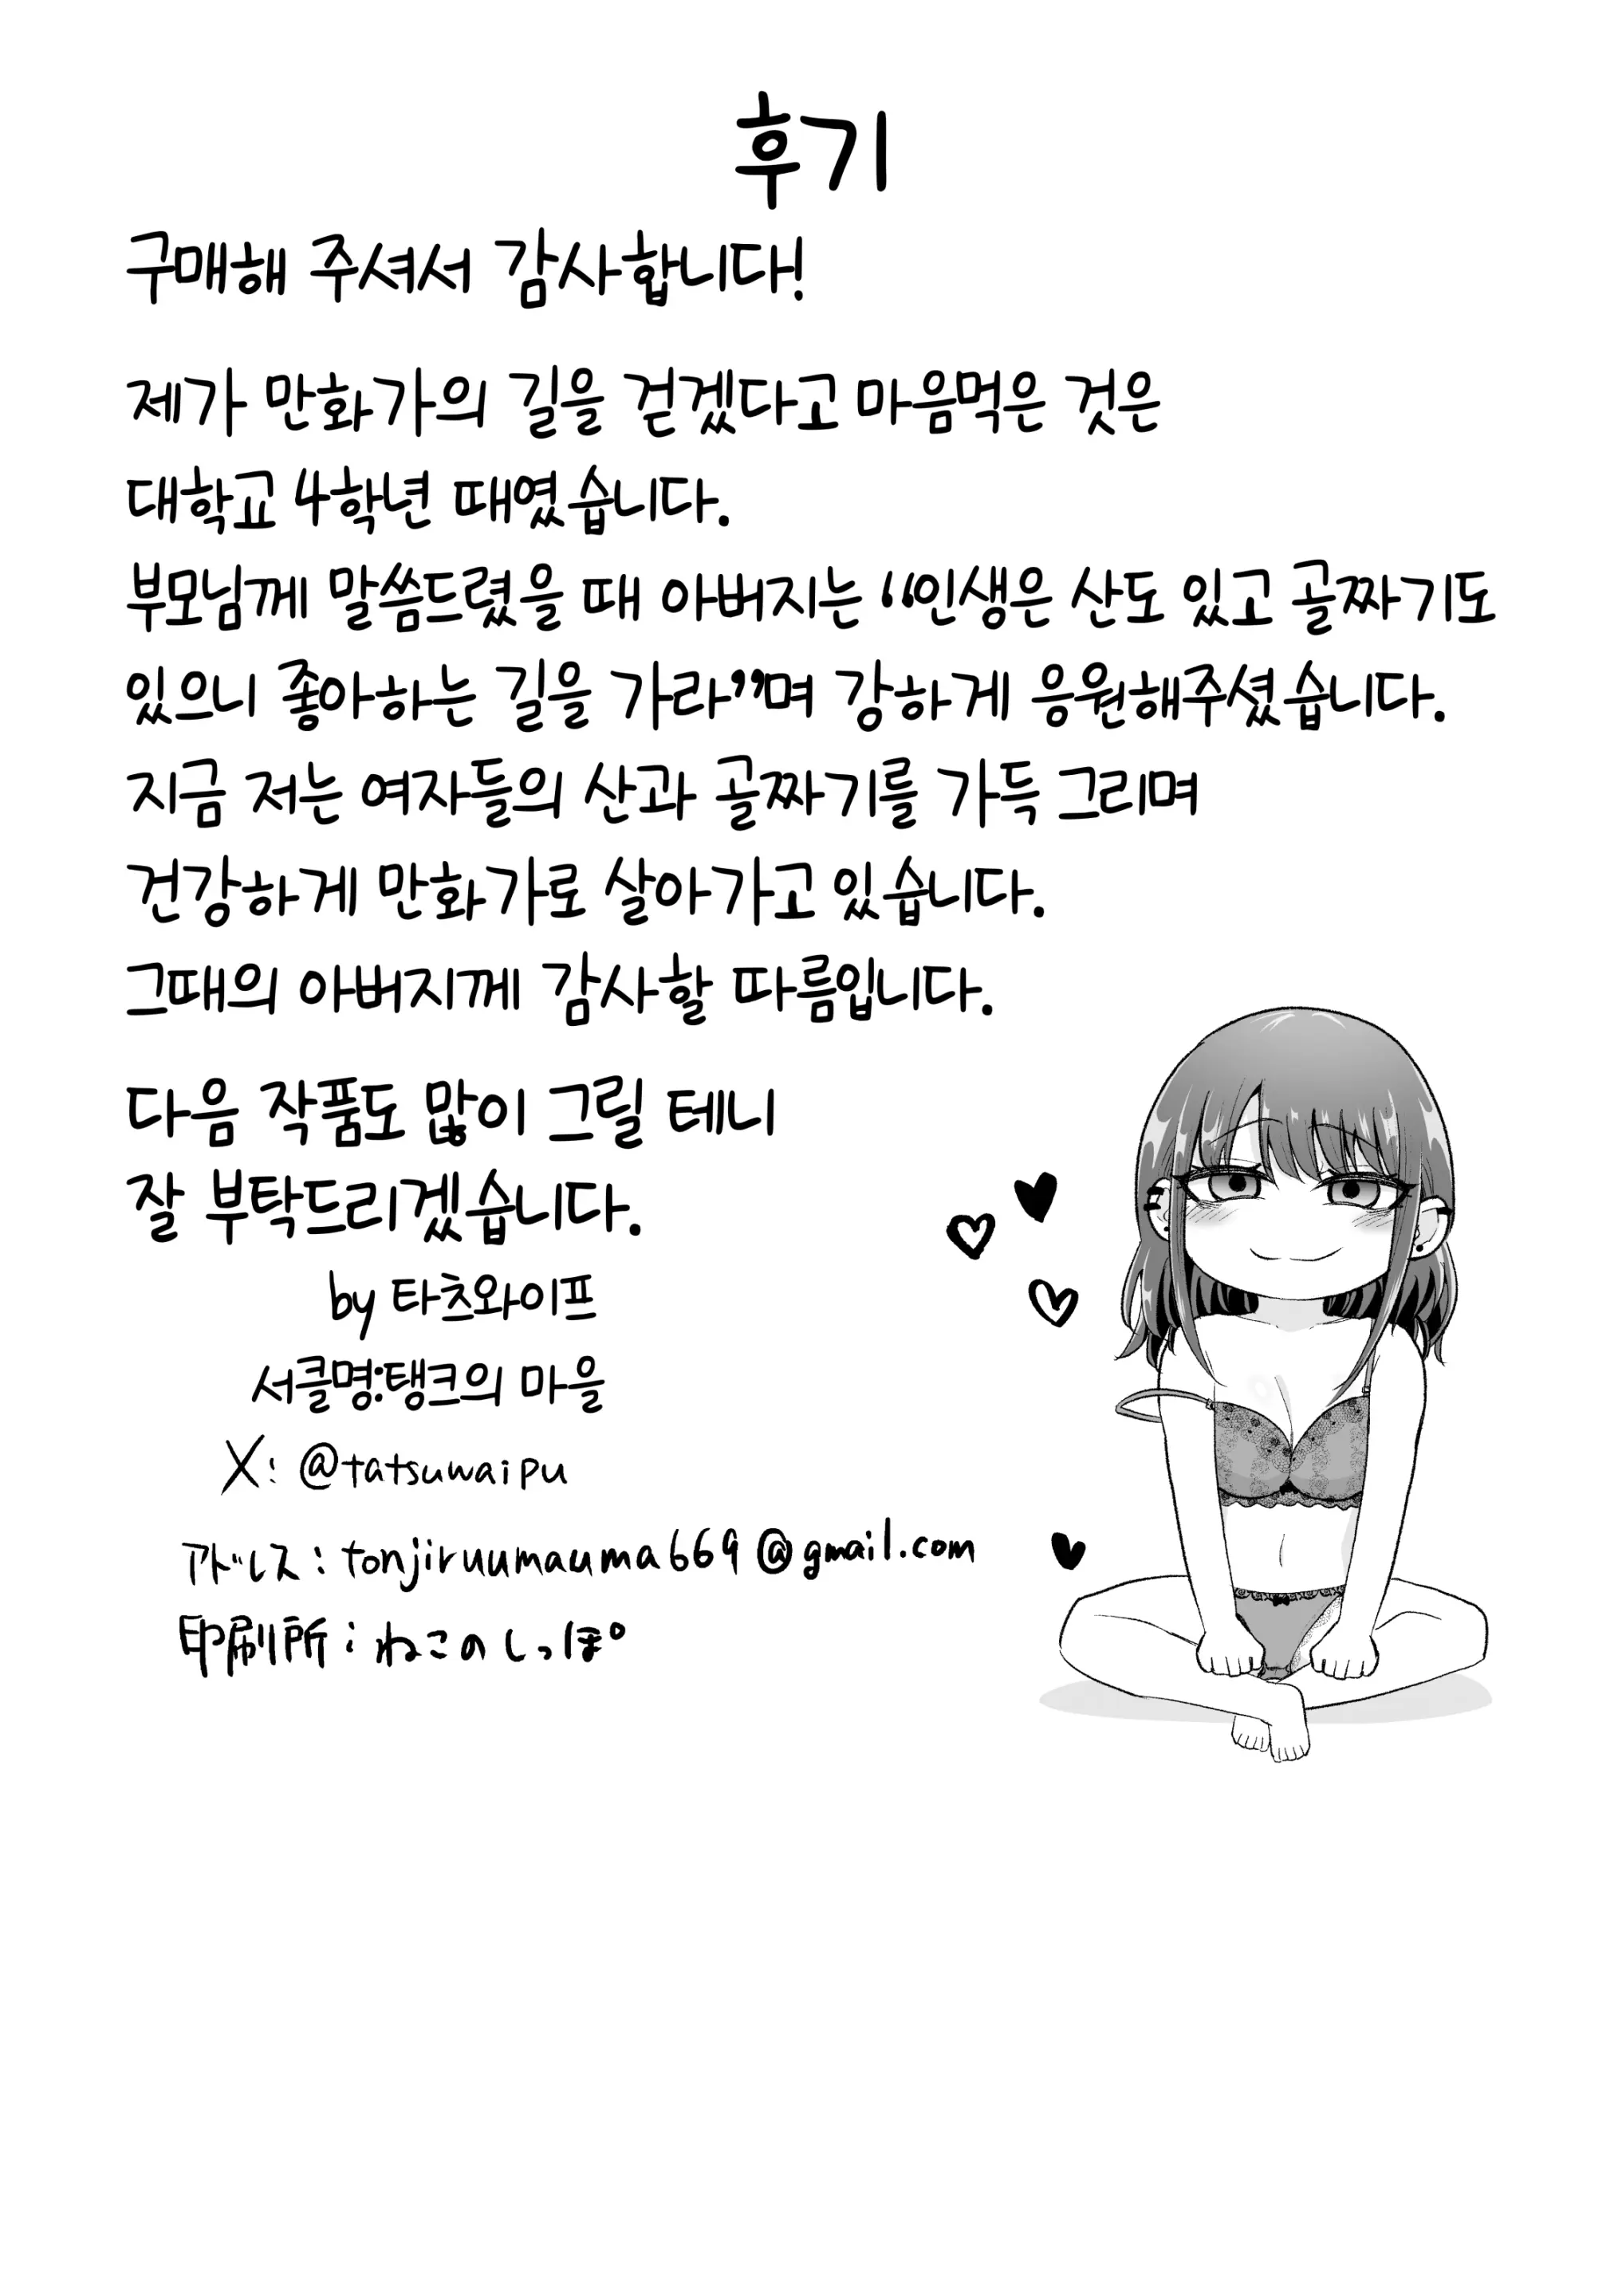 후기
구매해 주셔서 감사합니다!
제가 만화가의 길을 걷겠다고 마음먹은 것은
대학교 4학년 때였습니다.
부모님께 말씀드렸을 때 아버지는 “인생은 산도 있고 골짜기도
있으니 좋아하는 길을 가라”며 강하게 응원해주셨습니다.
지금 저는 여자들의 산과 골짜기를 가득 그리며
건강하게 만화가로 살아가고 있습니다.
그때의 아버지께 감사할 따름입니다.
다음 작품도 많이 그릴 테니
잘 부탁드리겠습니다.
by 타츠와이프
서클명:탱크의 마을
X: @tatsuwaipu
アドレス: tonjiruumauma669@gmail.com
印刷所:ねこのしっぽ